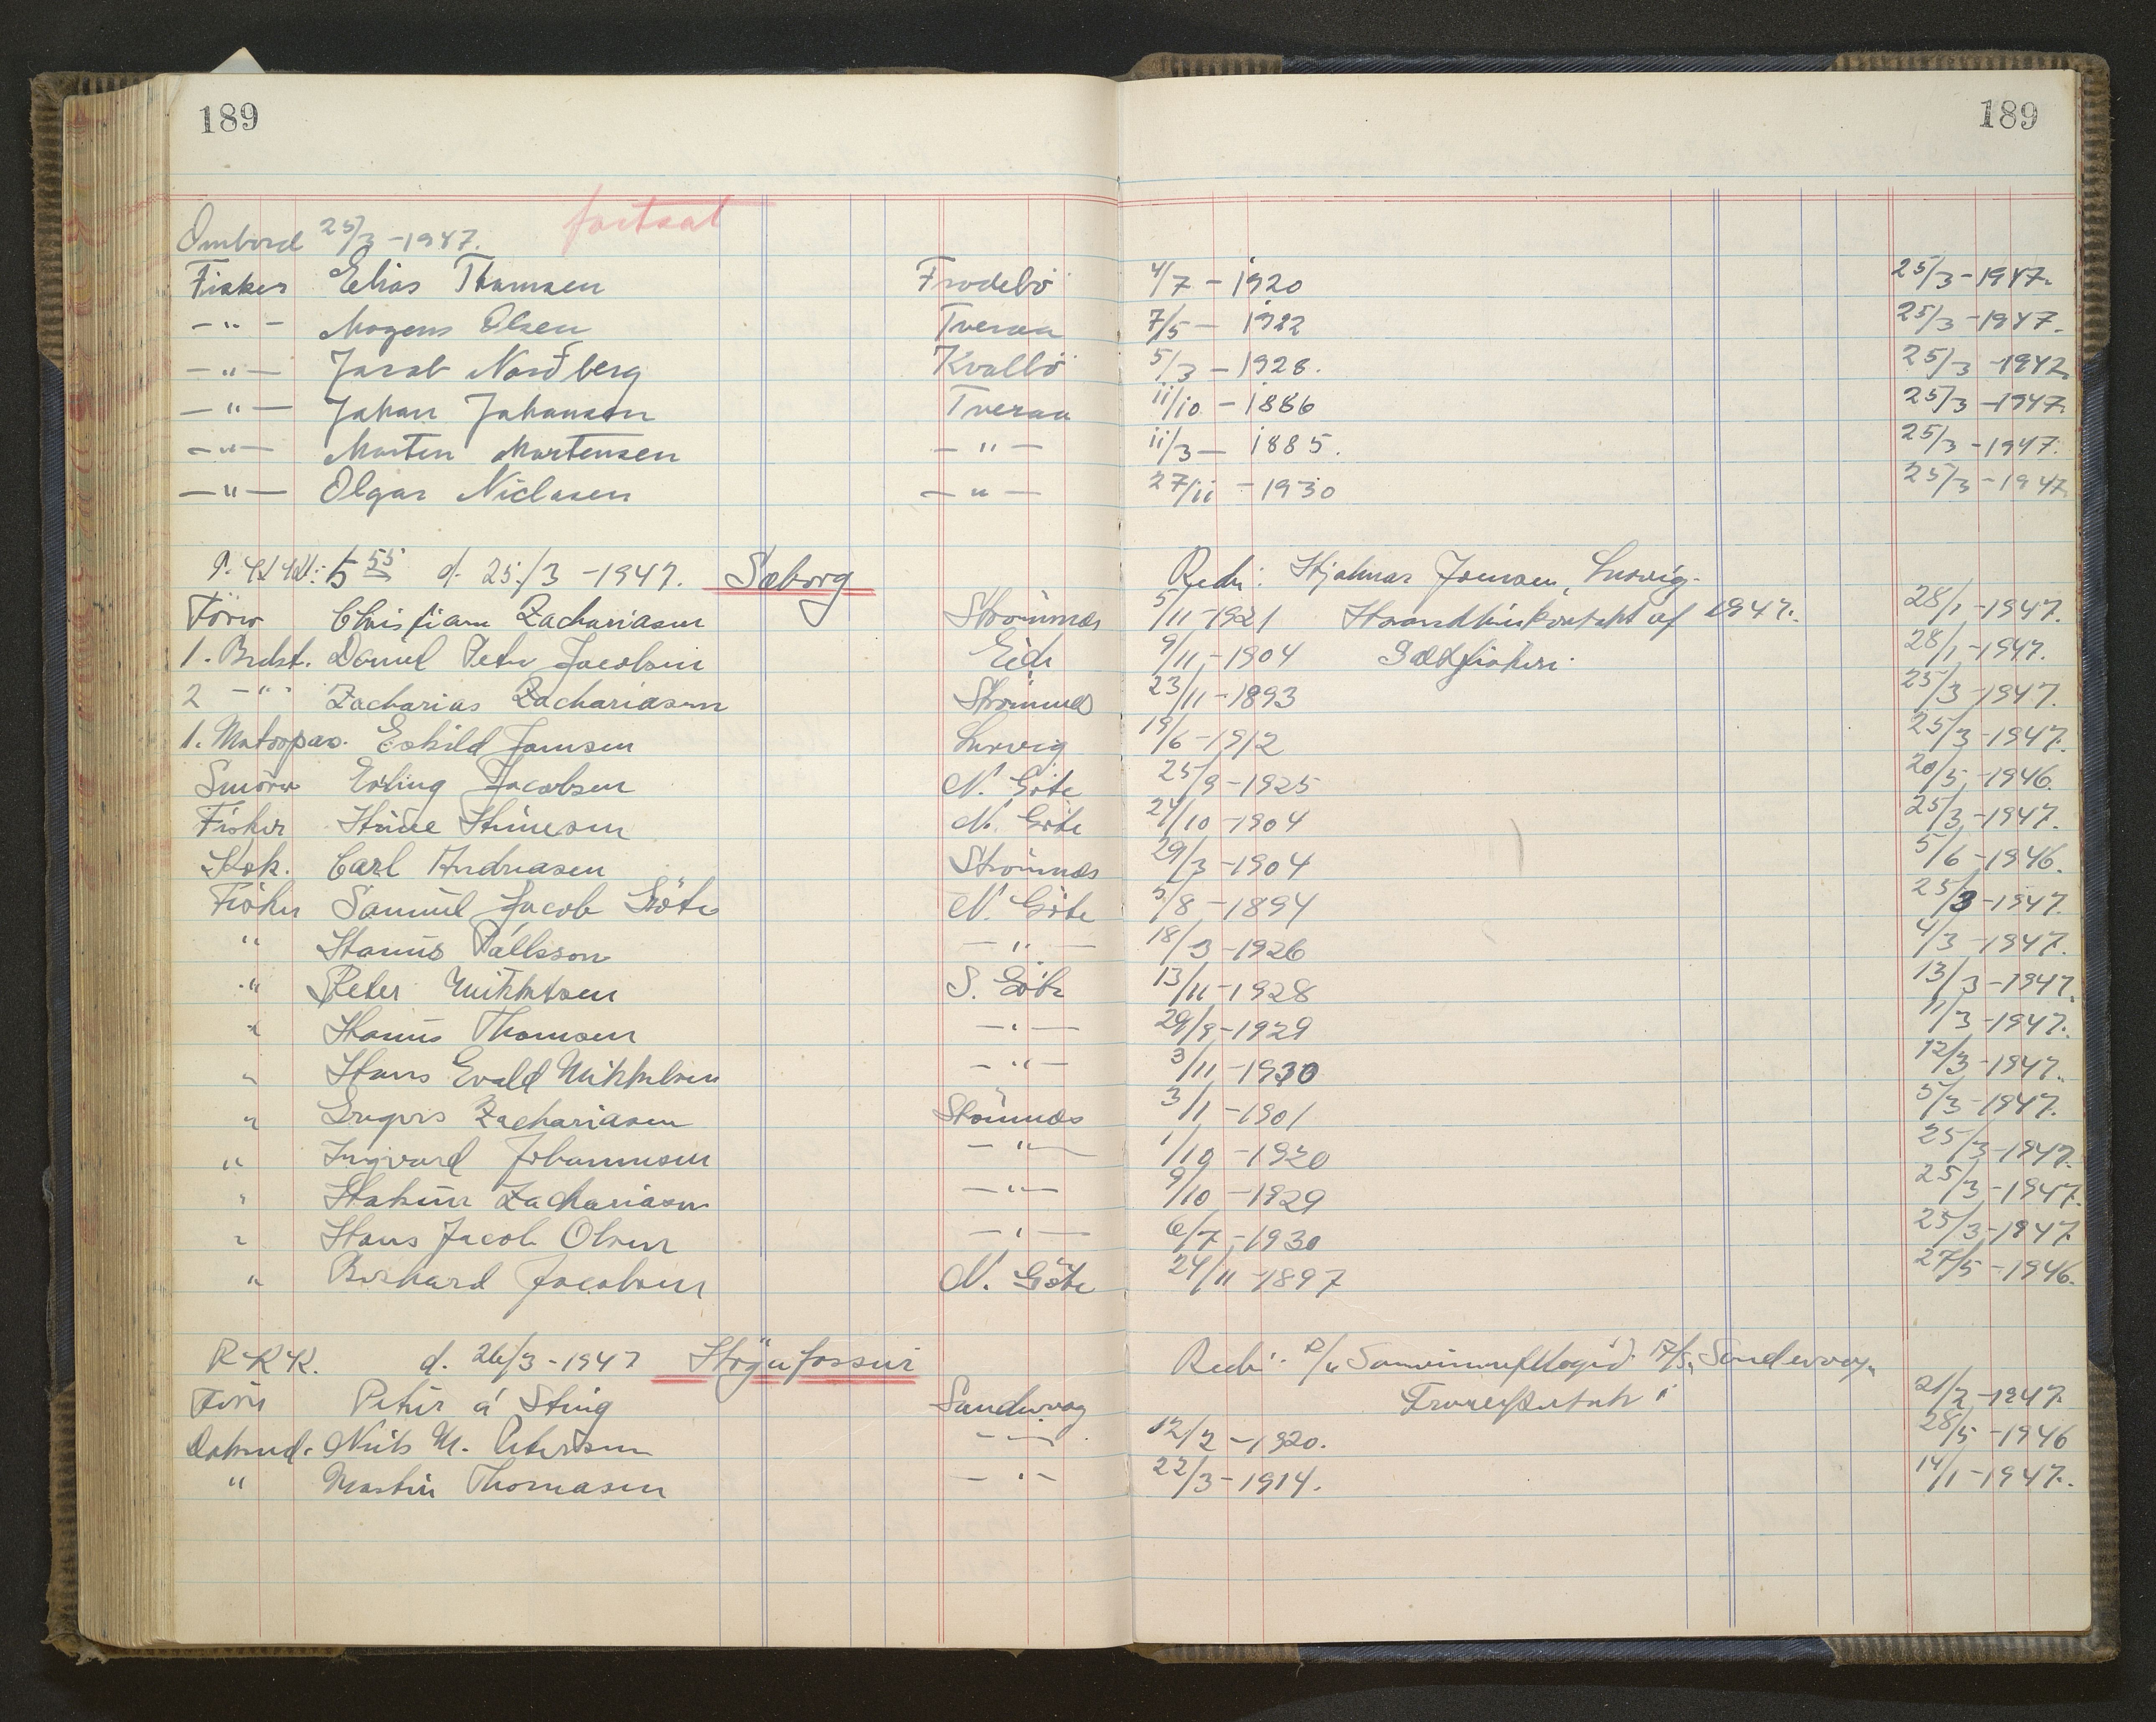 189 189
fortsat
Ombord 25/3-1947.
Fisker Elias Thomsen Frodebö 4/7-1920 25/3-1947.
-"- Mogens Olsen Tveraa 7/5-1922 25/3-1947.
-"- Jacob Nordberg Kvalbö 5/3-1928. 25/3-1947
-"- Johan Johansen Tveraa 11/10-1886 25/3-1947
-"- Morten Mortensen -"- 11/3-1885. 25/3-1947.
-"- Olgar Niclasen -"- 27/11-1930 25/3-1947
5 55 d. 25/3-1947. Søborg Redr: Hjalmar Joensen, Lorvig.
Förer Christian Zachariasen Strömnæs 5/11-1921 af 1947. 28/1-1947.
1. Bedst. Daniel Peter Jacobsen Eide 9/11-1904 Saltfiskeri 28/1-1947.
2 -"- Zacharias Zachariasen Strömnæs 23/11-1893 25/3-1947.
1. Motorpas. Eskild Joensen Lorvig 19/6-1912 25/3-1947.
Smörer Erling Jacobsen N. Göte 25/9-1925 20/5-1946.
Fisker Hanse Hansesen N. Göte 24/10-1904 25/3-1947.
Kok. Carl Andreasen Strömnæs 29/3-1904 5/6-1946.
Fisker Samuel Jacob Göte N. Göte 5/8-1894 25/3-1947.
" Hanus Pallsson -"- 18/3-1926 4/3-1947.
" Peter Mikkelsen S. Göte 13/11-1928 13/3-1947.
" Hanus Thomsen -"- 29/9-1929 11/3-1947.
" Hans Evald Mikkelsen -"- 3/11-1930 12/3-1947.
" Zachariasen Strömnæs 3/1-1901 5/3-1947.
" Ingvard Johannesen -"- 1/10-1920 25/3-1947.
" Hakun Zachariasen -"- 9/10-1929 25/3-1947.
" Hans Jacob Olsen -"- 6/7-1930 25/3-1947
" Berhard Jacobsen N. Göte 24/11-1897 27/5-1946.
R.K.K. d. 26/3-1947 Högufossur Redr: Sandevaag
Förer Petur á Steig Sandevaag 21/2-1947.
Doksmd. Niels M. Petersen -"- 12/2-1920. 28/5-1946
" Martin Thomasen -"- 22/3-1914. 14/1-1947.